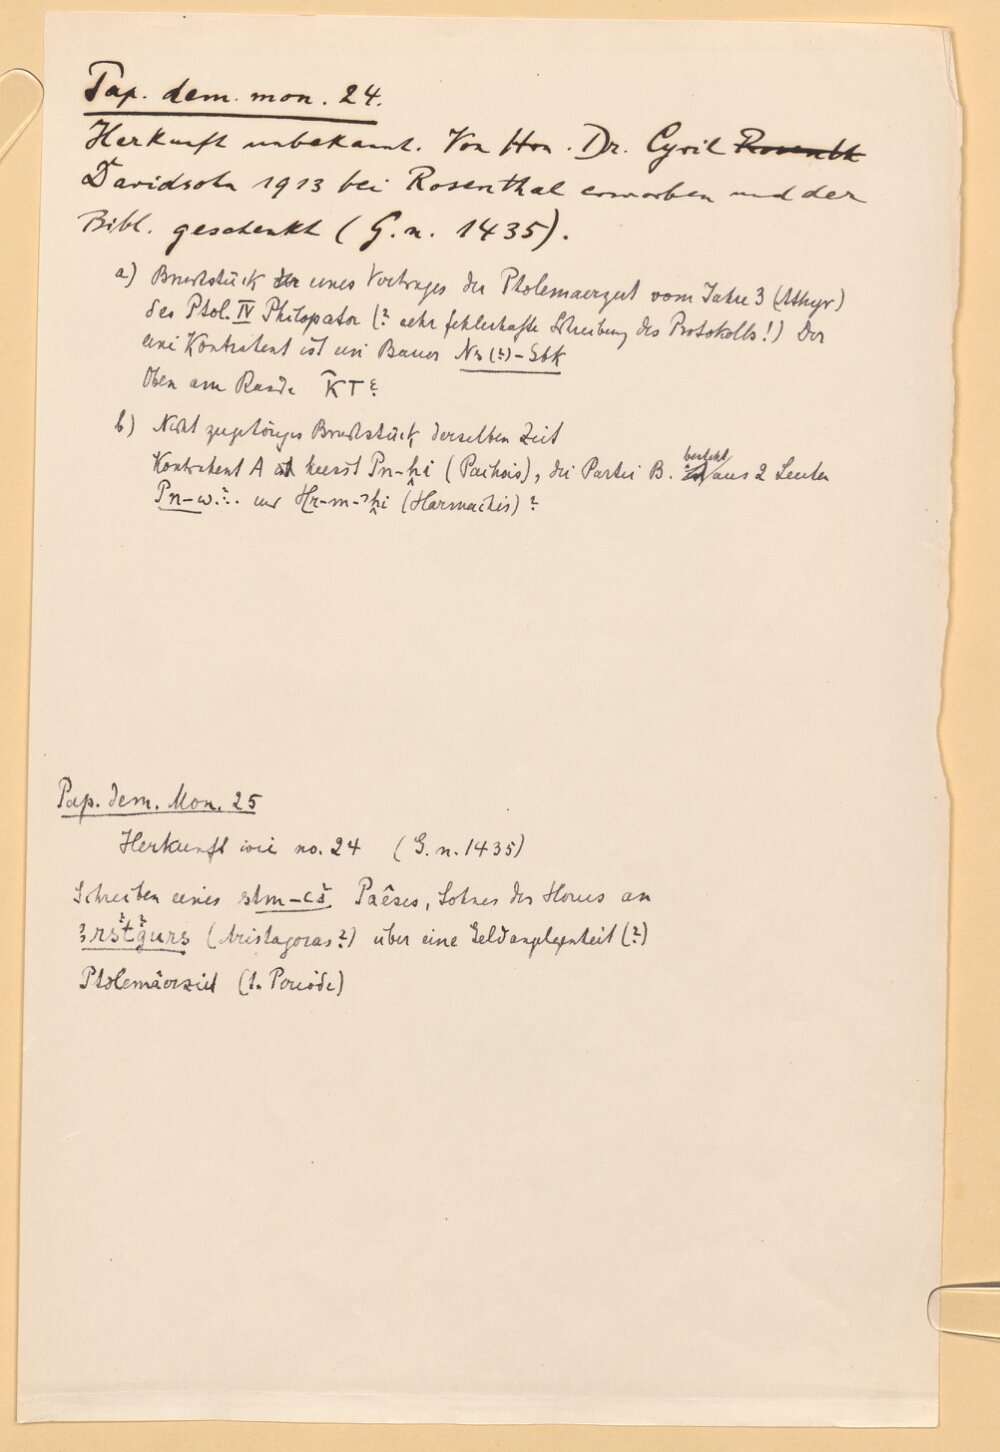 Pap. dem. mon. 24.
Herkunft unbekannt. Von Hrn. Dr. Cyril Rosenth
Davidsohn 1913 bei Rosenthal erworben und der
Bibl. geschenkt (G. n. 1435).
a) Bruchstück der eines Vertrages der Ptolemaerzeit vom Jahre 3 (Athyr)
des Ptol. IV Philopator (? sehr fehlerhafte Schreibung des Protokolls!) Der
eine Kontrahent ist ein Bauer Ns(?)-Sbk
Oben am Rande KT ?
b) Nicht zugehöriges Bruchstück derselben Zeit
Kontrahent A heisst Pn-ḫi (Pachois), die Partei B. besteht aus 2 Leuten
Pn-w... und Hr-m-ꜣḫi (Harmachis)?
Pap. dem. Mon. 25
Herkunft wie no. 24 (G. n. 1435)
Schreiben eines sṯm-ꜥš Paêses, Sohnes des Horus an
ꜣrsṭgurs (Aristagoras?) über eine Geldangelegenheit (?)
Ptolemäerzeit (1. Periode)